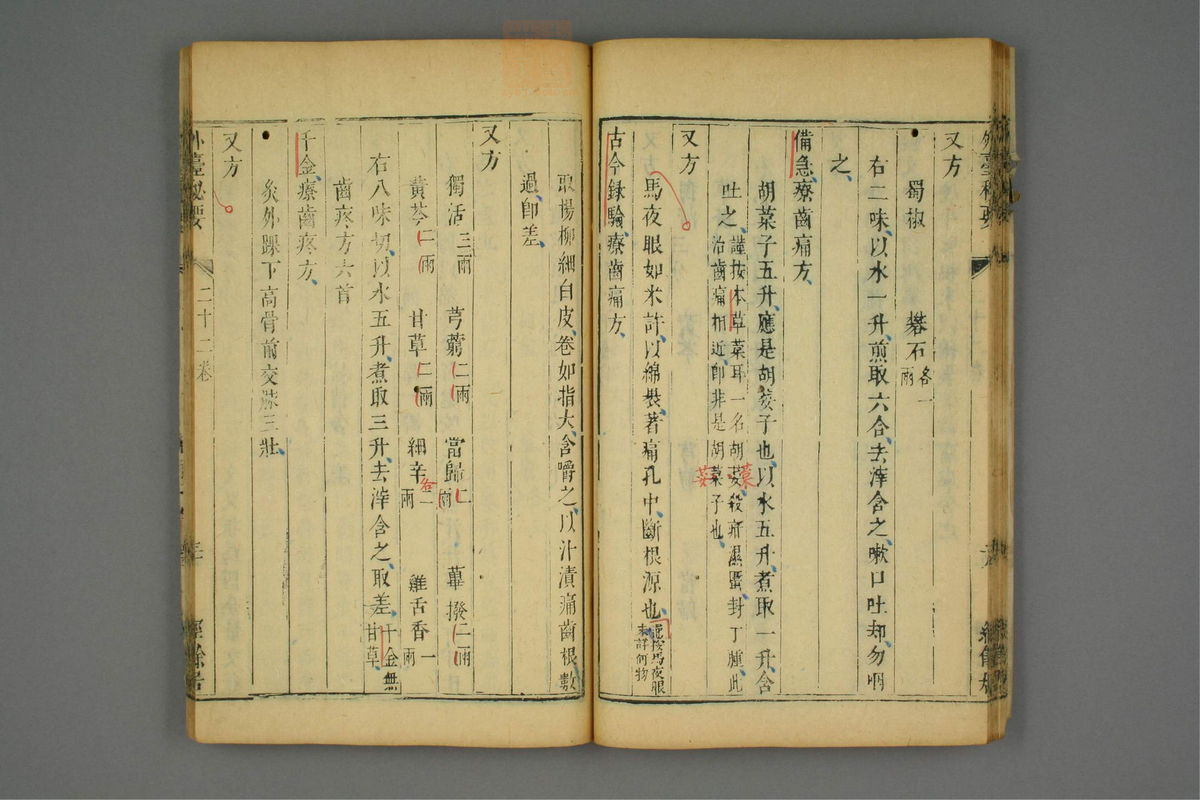 又方
蜀椒 礬石各一兩
右二味以水一升煎取六合去滓含之嗽口吐却勿咽
之
備急療齒痛方
胡菜子五升應是胡荽子也以水五升煮取一升含
吐之謹按本草菜耳一名胡荽殺疥濕䘌封丁腫此
治齒痛相近即非是胡菜子也
菜
荽
又方
馬夜眼如米許以綿裝著痛孔中斷根源也謹按馬夜眼
未詳何物
古今録驗療齒痛方
取楊柳細白皮卷如指大含嚼之以汁漬痛齒根數
過即差
又方
獨活三兩 芎藭二兩 當歸二兩 蓽撥二兩
黃芩二兩 甘草二兩 細辛各一兩 雞舌香一兩
右八味切以水五升煮取三升去滓含之取差千金無
甘草
齒疼方六首
千金療齒疼方
灸外踝下高骨前交脉三壯
又方
外臺秘要
二十二卷
三
經餘居